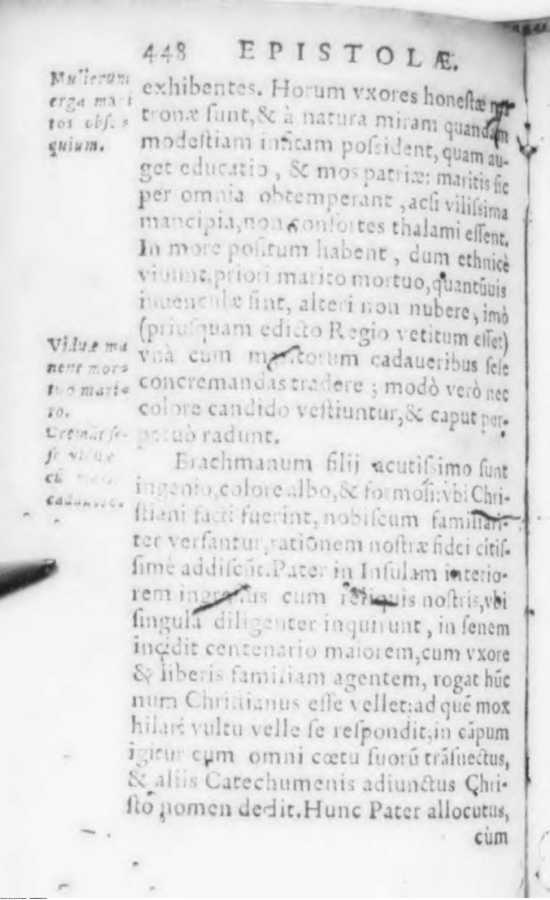 448 EPISTOLÆ.
Mulierum
erga mari
tos obse
quium.
exhibentes. Horum vxores honestæ
tronæ sunt, & à natura miram quandam
modestiam insitam possident, quam au-
get educatio, & mos patriæ: maritis sic
per omnia obtemperant, acsi vilissima
mancipia, non consortes thalami essent.
In more positum habent, dum ethnicè
viuunt, priori marito mortuo, quantũuis
iuuenculæ sint, alteri non nubere, imò
(priusquam edicto Regio vetitum esset)
vnà cum maritorum cadaueribus sese
concremandas tradere; modò verò nec
colore candido vestiuntur, & caput per-
petuò radunt.
Viduæ ma
nent mor
tuo mari
to.
Cremāt se-
se viduæ
cadau
Brachmanum filij acutissimo sunt
ingenio, colore albo, & formosi: vbi Chri-
stiani facti fuerint, nobiscum familiari-
ter versantur, rationem nostræ fidei citis-
simè addiscūt. Pater in Insulam interio-
rem ingressus cum reliquis nostris, vbi
singula diligenter inquirunt, in senem
incidit centenario maiorem, cum vxore
& liberis familiam agentem, rogat hūc
num Christianus esse vellet: ad quē mox
hilari vultu velle se respondit, in cāpum
igitur cum omni cœtu suorū trāsuectus,
& aliis Catechumenis adiunctus Chri-
sto nomen dedit. Hunc Pater allocutus,
cùm